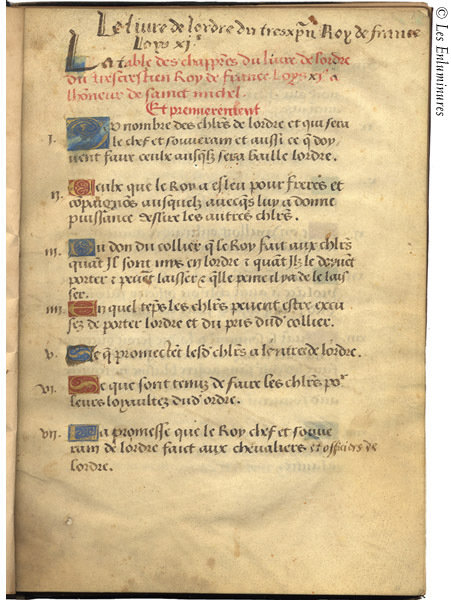 Le livre de lordre du tresxpn Roy de france
Loys xj.e
La table des chappres du livre de lordre
du trescrestien Roy de france Loys xj.e a
lhoneur de sainct michel.
Et premierement
I. Du nombre des chlrs de lordre et qui sera
le chef et souverain et aussi ce q doy
vent faire ceulx ausqlz sera baille lordre.
II. Ceulx que le Roy a esleu pour freres et
copaignōs ausquelz avecqs luy a donne
puissance deslire les autres chlrs.
III. Du don du collier q le Roy fait aux chlrs
quāt Il sont mys en lordre et quāt Ilz le doyvēt
porter et peuēt laisser et qlle peine il y a de le lais
ser.
IIII. En quel temps les chlrs peuent estre excu
sez de porter lordre et du pris dud collier.
V. Ce q promectēt lesd chlrs a lentree de lordre.
VI. Ce que sont tenuz de faire les chlrs po.r
leurs loyaultez dud ordre.
VII. La promesse que le Roy chef et souve
rain de lordre faict aux chevaliers et officiers de
lordre.
© Les Enluminures